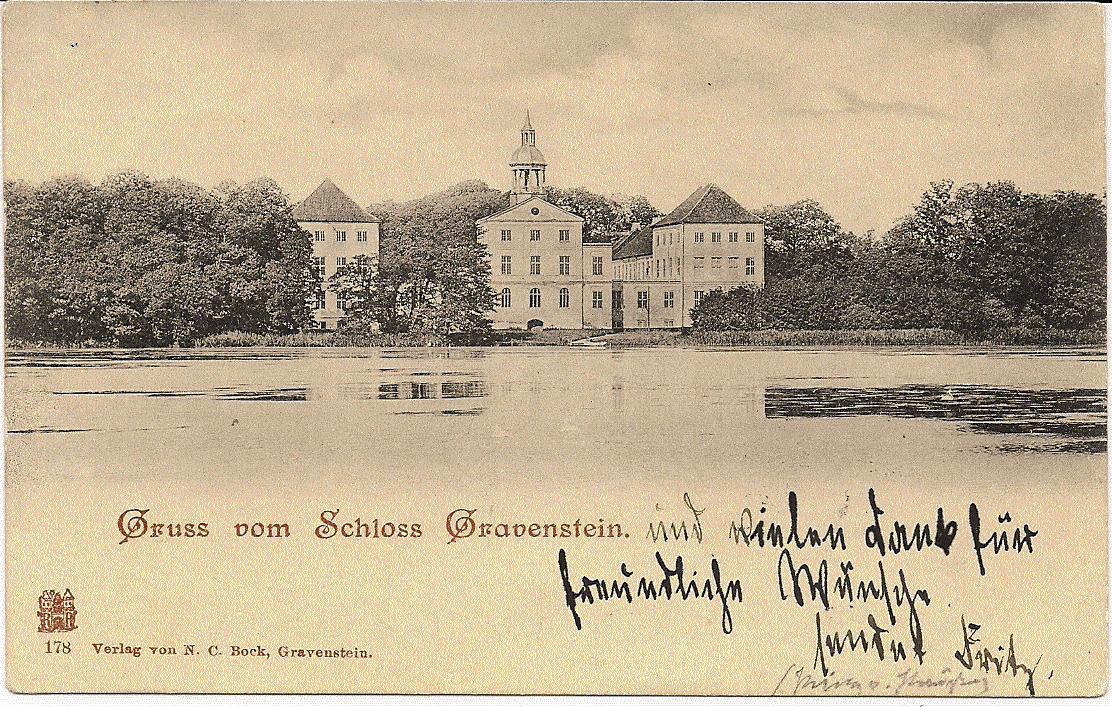 Gruss vom Schloss Gravenstein. und vielen Dank für
freundliche Wünsche
sendet Fritz.
178 Verlag von N. C. Bock, Gravenstein.